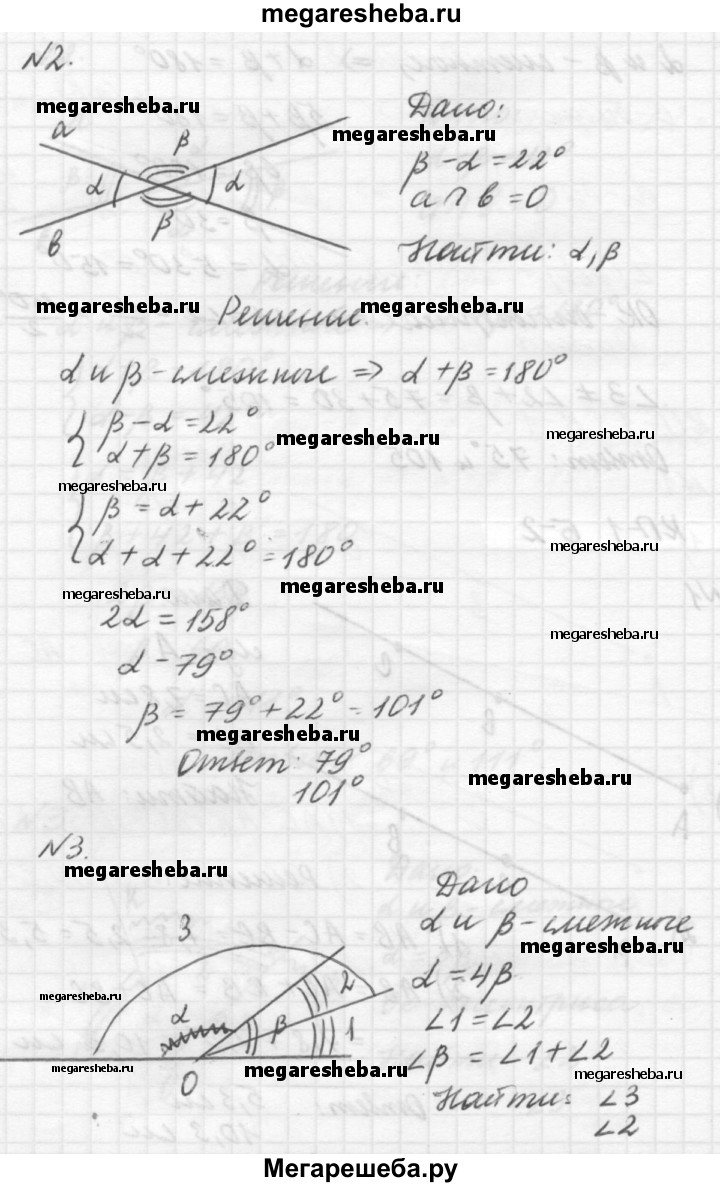 megaresheba.ru
N2.
megaresheba.ru
Дано:
megaresheba.ru
a
β
β - α = 22°
α
α
a ∩ b = 0
β
b
Найти: α, β
megaresheba.ru
Решение.
megaresheba.ru
α и β - смежные => α + β = 180°
β - α = 22°
megaresheba.ru
megaresheba.ru
α + β = 180°
megaresheba.ru
β = α + 22°
α + α + 22° = 180°
megaresheba.ru
megaresheba.ru
megaresheba.ru
2α = 158°
megaresheba.ru
α - 79°
β = 79° + 22° = 101°
megaresheba.ru
Ответ: 79°
megaresheba.ru
101°
N3.
megaresheba.ru
Дано
3
α и β - смежные
megaresheba.ru
α = 4β
megaresheba.ru
2
α
β
1
∠1 = ∠2
∠β = ∠1 + ∠2
megaresheba.ru
O
megaresheba.ru
megaresheba.ru
Найти: ∠3
∠2
Мегарешеба.ру